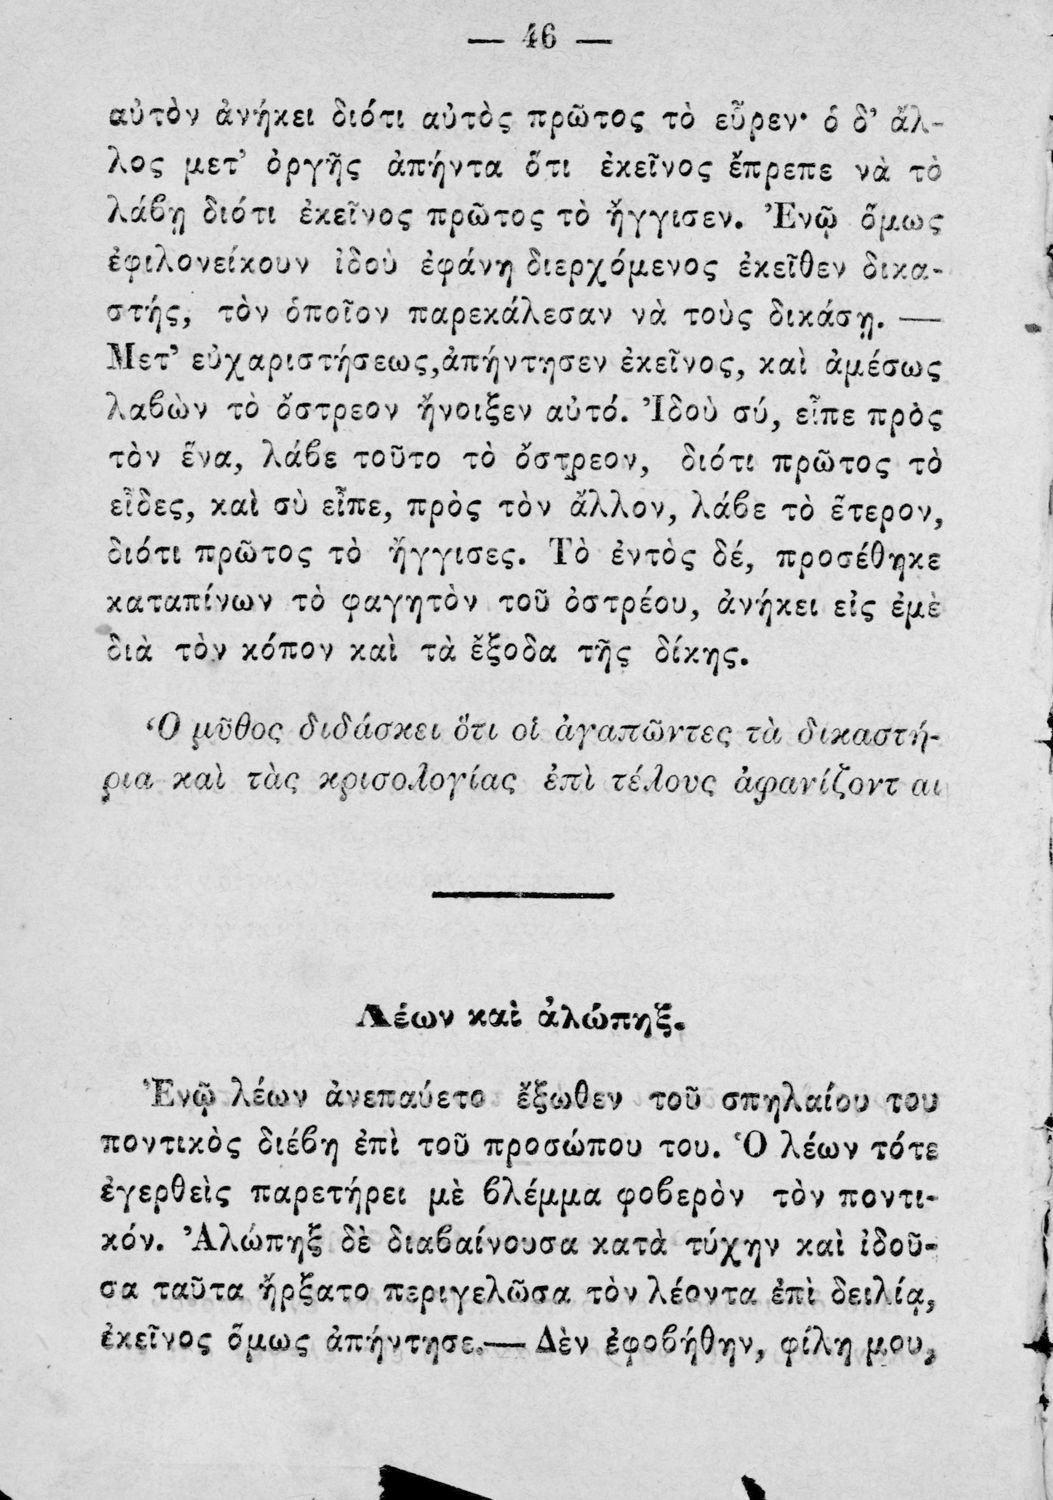 — 46 —
αὐτὸν ἀνήκει διότι αὐτὸς πρῶτος τὸ εὗρεν· ὁ δ’ ἄλ-
λος μετ’ ὀργῆς ἀπήντα ὅτι ἐκεῖνος ἔπρεπε νὰ τὸ
λάβῃ διότι ἐκεῖνος πρῶτος τὸ ἤγγισεν. Ἐνῷ ὅμως
ἐφιλονείκουν ἰδοὺ ἐφάνη διερχόμενος ἐκεῖθεν δικα-
στής, τὸν ὁποῖον παρεκάλεσαν νὰ τοὺς δικάσῃ. —
Μετ’ εὐχαριστήσεως,ἀπήντησεν ἐκεῖνος, καὶ ἀμέσως
λαβὼν τὸ ὄστρεον ἤνοιξεν αὐτό. Ἰδοὺ σύ, εἶπε πρὸς
τὸν ἕνα, λάβε τοῦτο τὸ ὄστρεον, διότι πρῶτος τὸ
εἶδες, καὶ σὺ εἶπε, πρὸς τὸν ἄλλον, λάβε τὸ ἕτερον,
διότι πρῶτος τὸ ἤγγισες. Τὸ ἐντὸς δέ, προσέθηκε
καταπίνων τὸ φαγητὸν τοῦ ὀστρέου, ἀνήκει εἰς ἐμὲ
διὰ τὸν κόπον καὶ τὰ ἔξοδα τῆς δίκης.
Ὁ μῦθος διδάσκει ὅτι οἱ ἀγαπῶντες τὰ δικαστή-
ρια καὶ τὰς κρισολογίας ἐπὶ τέλους ἀφανίζοντ αι
Λέων καὶ ἀλώπηξ.
Ἐνῷ λέων ἀνεπαύετο ἔξωθεν τοῦ σπηλαίου του
ποντικὸς διέβη ἐπὶ τοῦ προσώπου του. Ὁ λέων τότε
ἐγερθεὶς παρετήρει μὲ βλέμμα φοβερὸν τὸν ποντι-
κόν. Ἀλώπηξ δὲ διαβαίνουσα κατὰ τύχην καὶ ἰδοῦ-
σα ταῦτα ἤρξατο περιγελῶσα τὸν λέοντα ἐπὶ δειλίᾳ,
ἐκεῖνος ὅμως ἀπήντησε.— Δὲν ἐφοβήθην, φίλη μου,